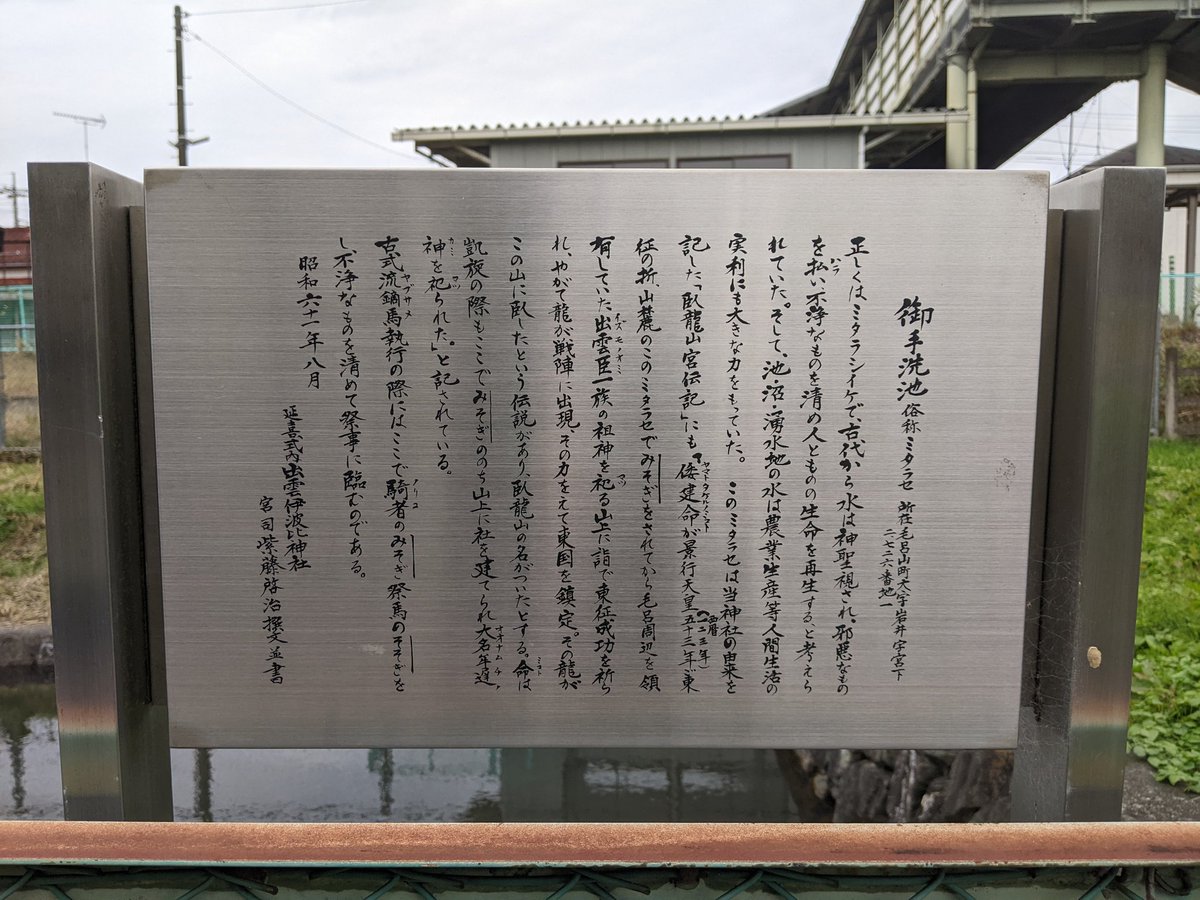 御手洗池 俗称 ミタラセ 所在 毛呂山町大字岩井字宮下
二七二六番地一
正しくは、ミタラシイケで、古代から水は神聖視され、邪悪なもの
を払い、不浄なものを清め人とものの生命を再生する、と考えら
れていた。そして、池・沼・湧水地の水は農業生産等人間生活の
実利にも大きな力をもっていた。 このミタラセは当神社の由来を
記した「臥龍山宮伝記」にも「倭建命が景行天皇五十三年(西暦一二三年)東
征の折、山麓のこのミタラセでみそぎをされてから毛呂周辺を領
有していた出雲臣一族の祖神を祀る山上に詣で東征成功を祈ら
れ、やがて龍が戦陣に出現、その力をえて東国を鎮定。その龍が
この山に臥したという伝説があり、臥龍山の名がついたとする。命は
凱旋の際もここでみそぎののち山上に社を建てられ大名牟遅
神を祀られた。」と記されている。
古式流鏑馬執行の際にはここで騎者のみそぎ祭馬のそそぎを
し、不浄なものを清めて祭事に臨むのである。
昭和六十一年八月
延喜式内出雲伊波比神社
宮司 紫藤啓治 撰文並書